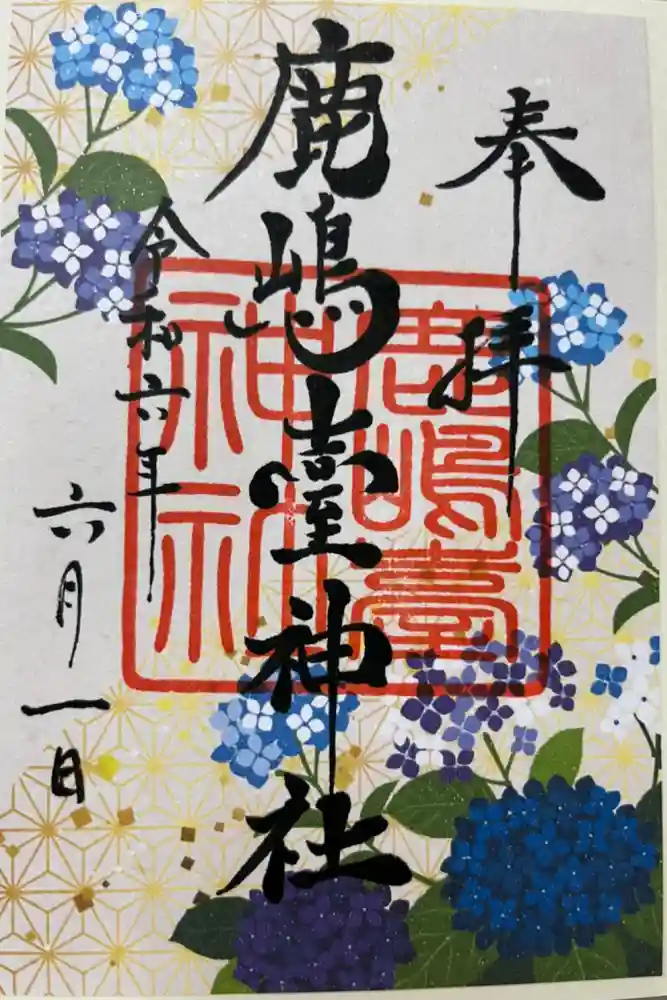 奉拝
鹿嶋臺神社
鹿嶋臺神社
令和六年
六月一日